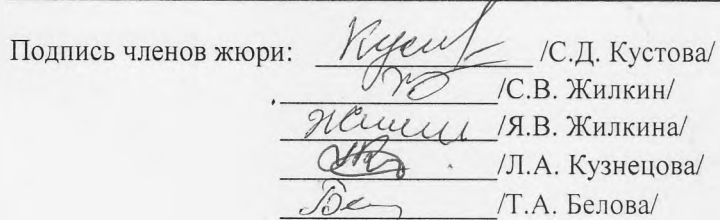 Подпись членов жюри: /С.Д. Кустова/
/С.В. Жилкин/
/Я.В. Жилкина/
/Л.А. Кузнецова/
/Т.А. Белова/